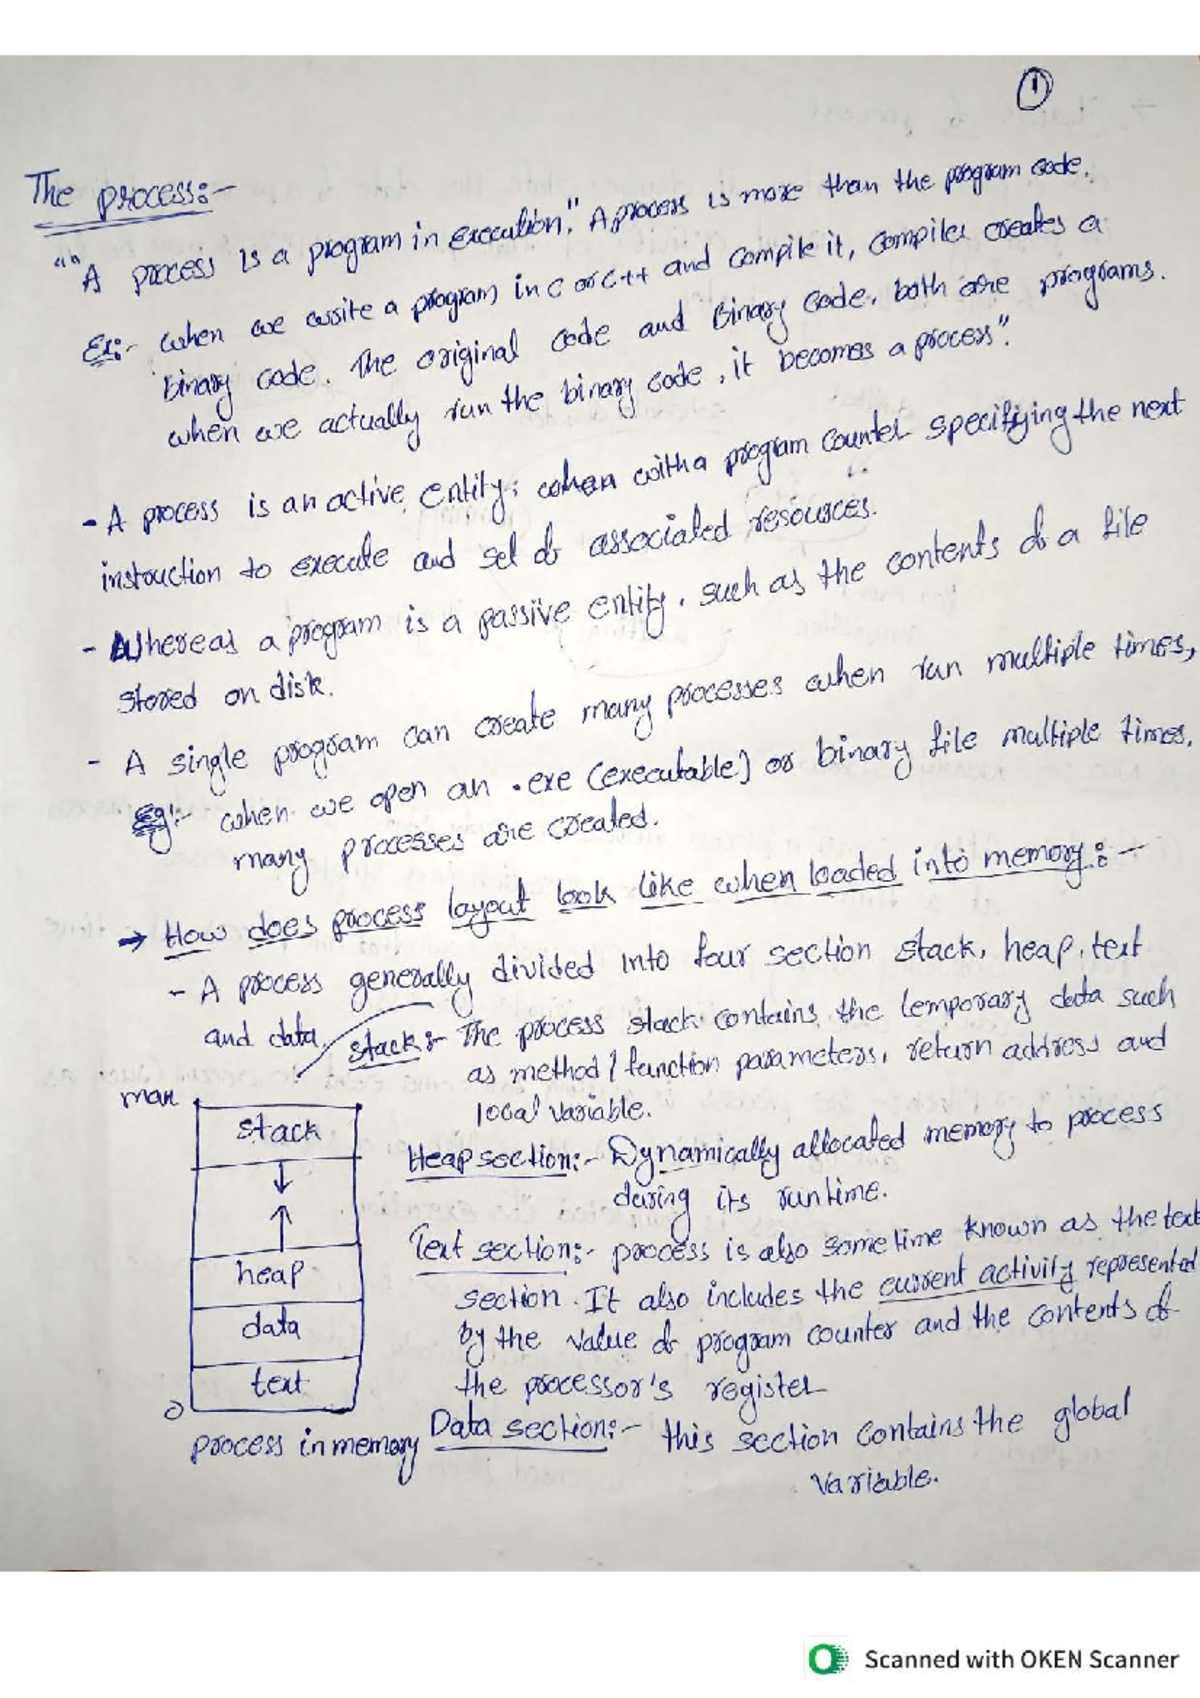 1
The process:-
""A process is a program in execution." A process is more than the program code.
Ex:- when we write a program in C or C++ and compile it, compiler creates a
binary code. The original code and Binary code, both are programs.
when we actually run the binary code, it becomes a process".
- A process is an active entity; when with a program counter specifiying the next
instruction to execute and set of associated resources.
- Whereas a program is a passive entity, such as the contents of a file
stored on disk.
- A single program can create many processes when run multiple times,
Eg:- when we open an .exe (executable) or binary file multiple times,
many processes are created.
→ How does process layout look like when loaded into memory:-
- A process generally divided into four section stack, heap, text
and data.
stack:- The process stack contains the temporary data such
as method/function parameters, return address and
local variable.
max
stack
heap
data
text
0
process in memory
Heap section:- Dynamically allocated memory to process
during its runtime.
Text section:- process is also sometime known as the text
section. It also includes the current activity represented
by the value of program counter and the contents of
the processor's register
Data section:- this section contains the global
variable.
Scanned with OKEN Scanner